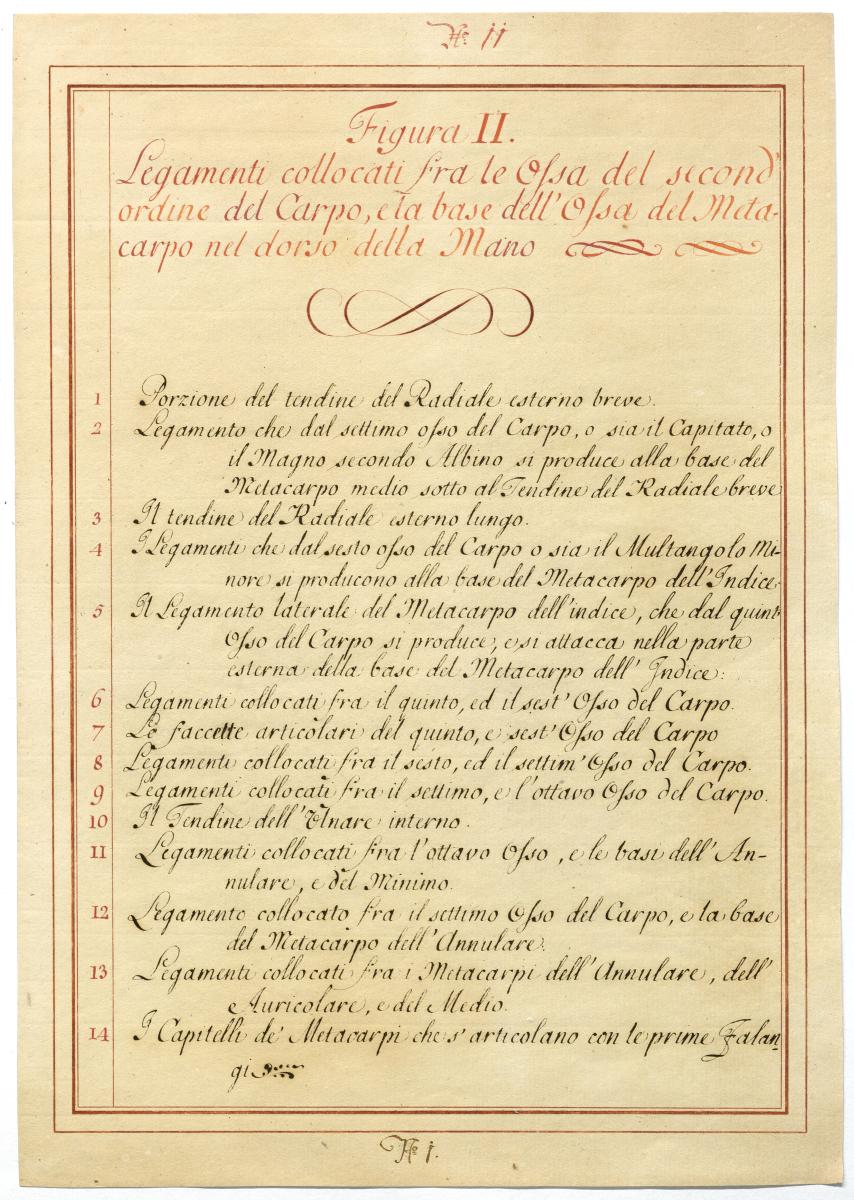 No. 11
Figura II.
Legamenti collocati fra le Ossa del second'
ordine del Carpo, e la base dell'Ossa del Meta-
carpo nel dorso della Mano
1 Porzione del tendine del Radiale esterno breve.
2 Legamento che dal settimo osso del Carpo, o sia il Capitato, o
il Magno secondo Albino si produce alla base del
Metacarpo medio sotto al Tendine del Radiale breve
3 Il tendine del Radiale esterno lungo.
4 I Legamenti che dal sesto osso del Carpo o sia il Multangolo Mi-
nore si producono alla base del Metacarpo dell'Indice
5 Il Legamento laterale del Metacarpo dell'indice, che dal quint'
Osso del Carpo si produce, e si attacca nella parte
esterna della base del Metacarpo dell' Indice:
6 Legamenti collocati fra il quinto, ed il sest' Osso del Carpo.
7 Le faccette articolari del quinto, e sest' Osso del Carpo
8 Legamenti collocati fra il sesto, ed il settim' Osso del Carpo.
9 Legamenti collocati fra il settimo, e l'ottavo Osso del Carpo.
10 Il Tendine dell'Ulnare interno.
11 Legamenti collocati fra l'ottavo Osso, e le basi dell' An-
nulare, e del Minimo.
12 Legamento collocato fra il settimo Osso del Carpo, e la base
del Metacarpo dell'Annulare.
13 Legamenti collocati fra i Metacarpi dell'Annulare, dell'
Auricolare, e del Medio.
14 I Capitelli de' Metacarpi che s' articolano con le prime Falan-
gi
No. 1.